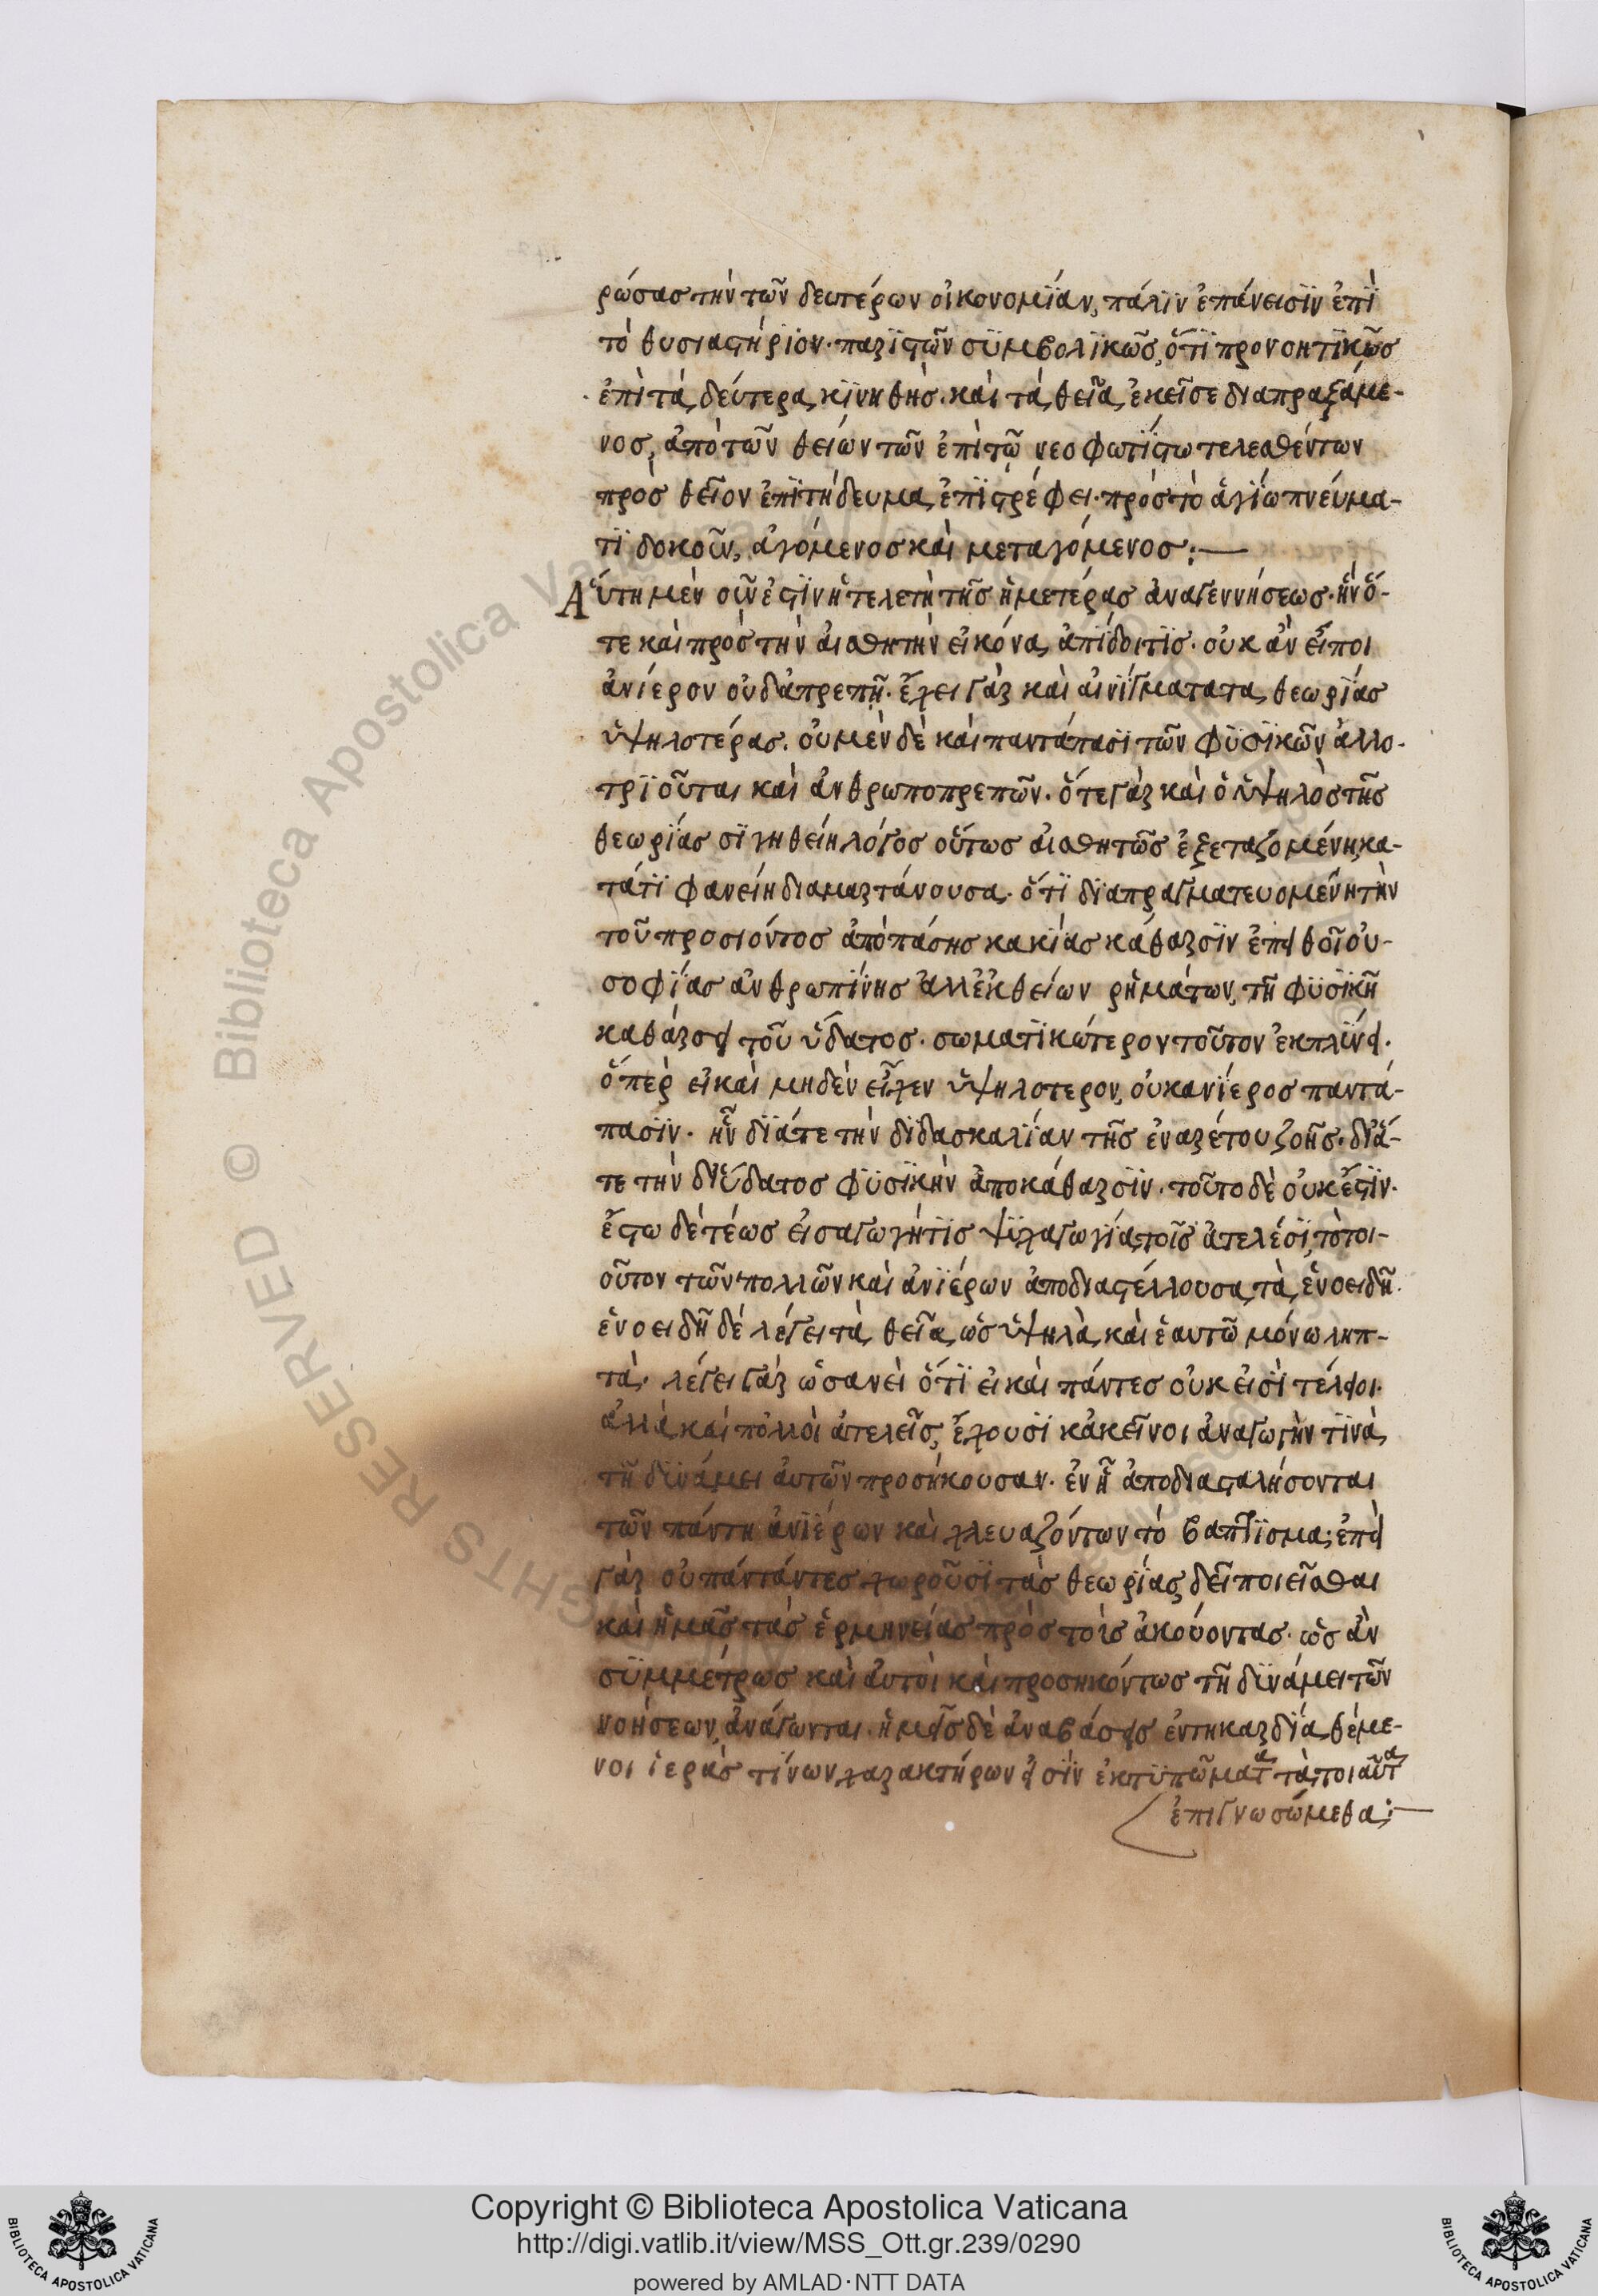 ρώσας τὴν τῶν δευτέρων οἰκονομΐαν, πάλϊν ἐπάνεισϊν ἐπΐ
τὸ θυσιαστήρϊον· παρϊστῶν συμβολϊκῶς, ὅτϊ προνοητϊκῶς
ἐπὶ τὰ δεύτερα κϊνηθῆς· καὶ τὰ θεῖα ἐκεῖσε διαπραξάμε-
νος, ἀπὸ τῶν θείων τῶν ἐπὶ τῶ νεοφωτίστω τελεσθέντων
πρὸς θεῖον ἐπϊτήδευμα ἐπϊστρέφει· πρὸς τὸ ἁγΐω πνεύμα-
τϊ δοκοῦν, ἀγόμενος καὶ μεταγόμενος:—
Αὕτη μὲν οὖν ἐστϊν ἡ τελετὴ τῆς ἡμετέρας ἀναγεννήσεως· ἣν ὅ-
τε καὶ πρὸς τὴν αἰσθητὴν εἰκόνα ἀπίδοι τϊς· οὐκ ἂν εἴποι
ἀνίερον οὐδ' ἀπρεπῆ· ἔχει γὰρ καὶ αἰνίγματα τὰ θεωρϊας
ὑψηλοτέρας. οὐ μὲν δὲ καὶ παντάπασϊ τῶν φϋσϊκῶν ἀλλο-
τρϊοῦται καὶ ἀνθρωποπρεπῶν. ὅτε γὰρ καὶ ὁ ὑψηλὸς τῆς
θεωρΐας σϊγηθείη λόγος οὕτως αἰσθητῶς ἐξεταζομένη, κα-
τά τϊ φανείη διαμαρτάνουσα· ὅτϊ δϊαπραγματευομένη τὴν
τοῦ προσιόντος ἀπὸ πάσης κακΐας κάθαρσϊν ἐπεὶ θοῖ οὐ-
σοφΐας ἀνθρωπΐνης ἀλλ' ἐκ θείων ῥημάτων, τῆ φϋσϊκῆ
καθάρσει τοῦ ὕδατος· σωματϊκώτερον τοῦτον ἐκπλύνει.
ὅπερ εἰ καὶ μηδὲν εἶχεν ὑψηλότερον, οὐκ ἀνΐερος παντά-
πασϊν· ἦν δϊά τε τὴν δϊδασκαλΐαν τῆς ἐναρέτου ζοῆς· δϊά-
τε τὴν δι' ὕδατος φϋσϊκὴν ἀποκάθαρσϊν. τοῦτο δὲ οὐκ ἔστϊν·
ἔστω δὲ τέως εἰσαγωγή τϊς ψϋχαγωγΐα τοῖς ἀτελέσϊ, τὸ τοι-
οῦτον τῶν πολλῶν καὶ ἀνϊέρων ἀποδϊαστέλλουσα, τὰ ἑνοειδῆ.
ἑνοειδῆ δὲ λέγει τὰ θεῖα, ὡς ὑψηλὰ καὶ ἑαυτῶ μόνω ληπ-
τὰ· λέγει γὰρ ὡσανεὶ ὅτϊ εἰ καὶ πάντες οὐκ εἰσὶ τέλειοι·
ἀλλὰ καὶ πολλοὶ ἀτελεῖς, ἔχουσϊ κἀκεῖνοι ἀναγωγήν τϊνὰ
τῆ δϋνάμει αὐτῶν προσήκουσαν· ἐν ἧ ἀποδιασταλήσονται
τῶν πάντη ἀνϊέρων καὶ χλευαζόντων τὸ βαπτϊσμα; ἐπεὶ
γὰρ οὐ πάντα πάντες χωροῦσϊ τὰς θεωρΐας δεῖ ποιεῖσθαι
καὶ ἡμᾶς τὰς ἑρμηνείας πρὸς τοὺς ἀκούοντας· ὡς ἂν
συμμέτρως καὶ αὐτοὶ καὶ προσηκόντως τῆ δϋνάμει τῶν
νοήσεων, ἀνάγωνται. ἡμεῖς δὲ ἀναβάσεις ἐν τῆ καρδΐα θέμε-
νοι ἱερὰς τΐνων χαρακτήρων εἰσϊν ἐκτϋπώματα τὰ τοιαῦτα
ἐπιγνωσώμεθα:—
Copyright © Biblioteca Apostolica Vaticana
http://digi.vatlib.it/view/MSS_Ott.gr.239/0290
powered by AMLAD·NTT DATA